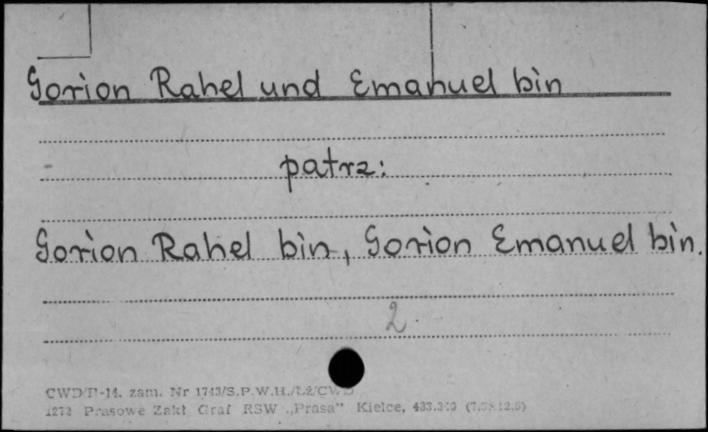 Gorion Rahel und Emanuel bin
patrz:
Gorion Rahel bin, Gorion Emanuel bin.
2
zam. Nr 1713/S.P.W.H.
Prasowe Zakł. Graf RSW „Prasa” Kielce,